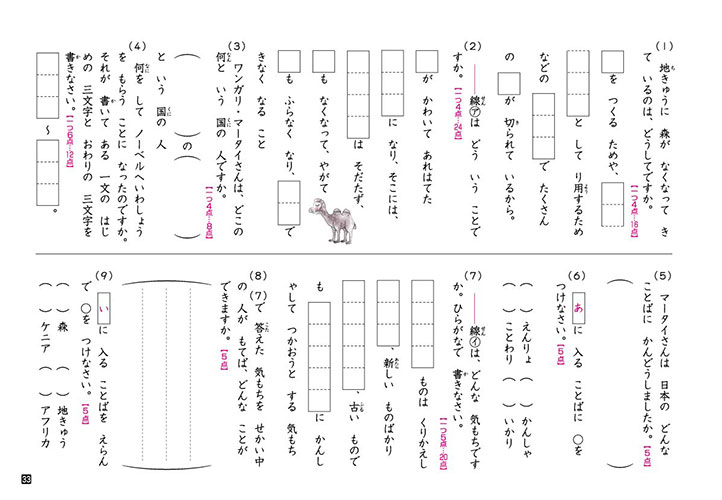 (1) 地きゅうに 森が なくなって き
て いるのは、どうしてですか。
【一つ4点…16点】
を つくる ためや、
と して り用するため
などの で たくさん
の が 切られて いるから。
(2) ――線㋐は どう いう ことで
すか。【一つ4点…24点】
が かわいて あれはてた
に なり、そこには、
は そだたず、
も なくなって、やがて
も ふらなく なり、 で
きなく なる こと
(3) ワンガリ・マータイさんは、どこの
何と いう 国の 人ですか。
【一つ4点…8点】
( )の( )
と いう 国の 人
(4) 何を して ノーベルへいわしょう
を もらう ことに なったのですか。
それが 書いて ある 一文の はじ
めの 三文字と おわりの 三文字を
書きなさい。【一つ6点…12点】
〜 。
(5) マータイさんは 日本の どんな
ことばに かんどうしましたか。【5点】
( )
(6) あに 入る ことばに ○を
つけなさい。【5点】
( )えんりょ ( )かんしゃ
( )ことわり ( )いかり
(7) ――線㋑は、どんな 気もちです
か。ひらがなで 書きなさい。
【一つ5点…20点】
ものは くりかえし
、新しい ものばかり
、古い もので
も に かんし
ゃして つかおうと する 気もち
(8) (7)で 答えた 気もちを せかい中
の 人が もてば、どんな ことが
できますか。【5点】
(9) いに 入る ことばを えらん
で ○を つけなさい。【5点】
( )森 ( )地きゅう
( )ケニア ( )アフリカ
33